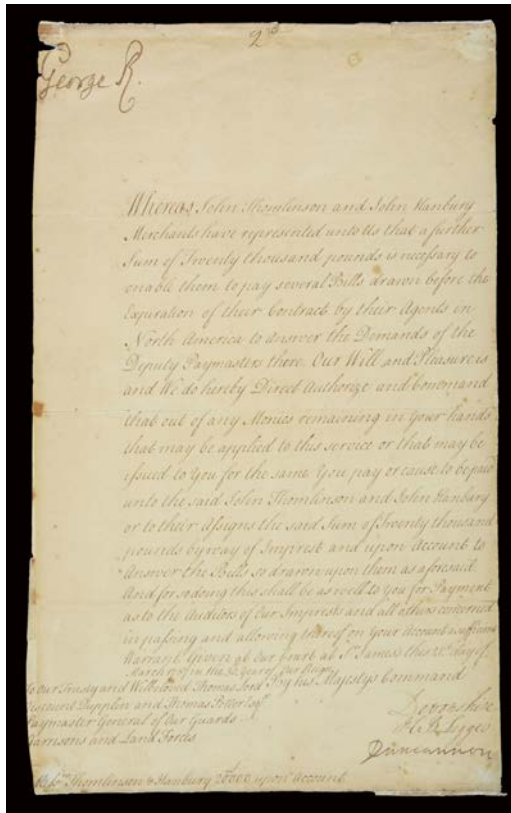 George R.
Whereas John Thomlinson and John Hanbury
Merchants have represented unto Us that a further
Sum of Twenty thousand pounds is necessary to
enable them to pay several Bills drawn before the
Expiration of their Contract by their Agents in
North America to answer the Demands of the
Deputy Paymasters there. Our Will and Pleasure is
and We do hereby Direct Authorize and Command
that out of any Monies remaining in your hands
that may be applied to this service or that may be
issued to you for the same You pay or cause to be paid
unto the said John Thomlinson and John Hanbury
or to their Assigns the said Sum of Twenty thousand
pounds by way of Imprest and upon Account to
Answer the Bills so drawn upon them as aforesaid
And for so doing this shall be as well to you for Payment
as to the Auditors of Our Imprests and all others concerned
in passing and allowing thereof on Your Account a sufficient
Warrant. Given at Our Court at St. James's this day of
March in the Year of Our Reign
By his Majestys Command
To Our Trusty and Welbeloved Thomas Lord
Viscount Dupplin and Thomas Potter Esqr.
Paymaster General of Our Guards
Garrisons and Land Forces
Devonshire
H. B. Legge
Duncannon
Thomlinson & Hanbury 20000 upon Account